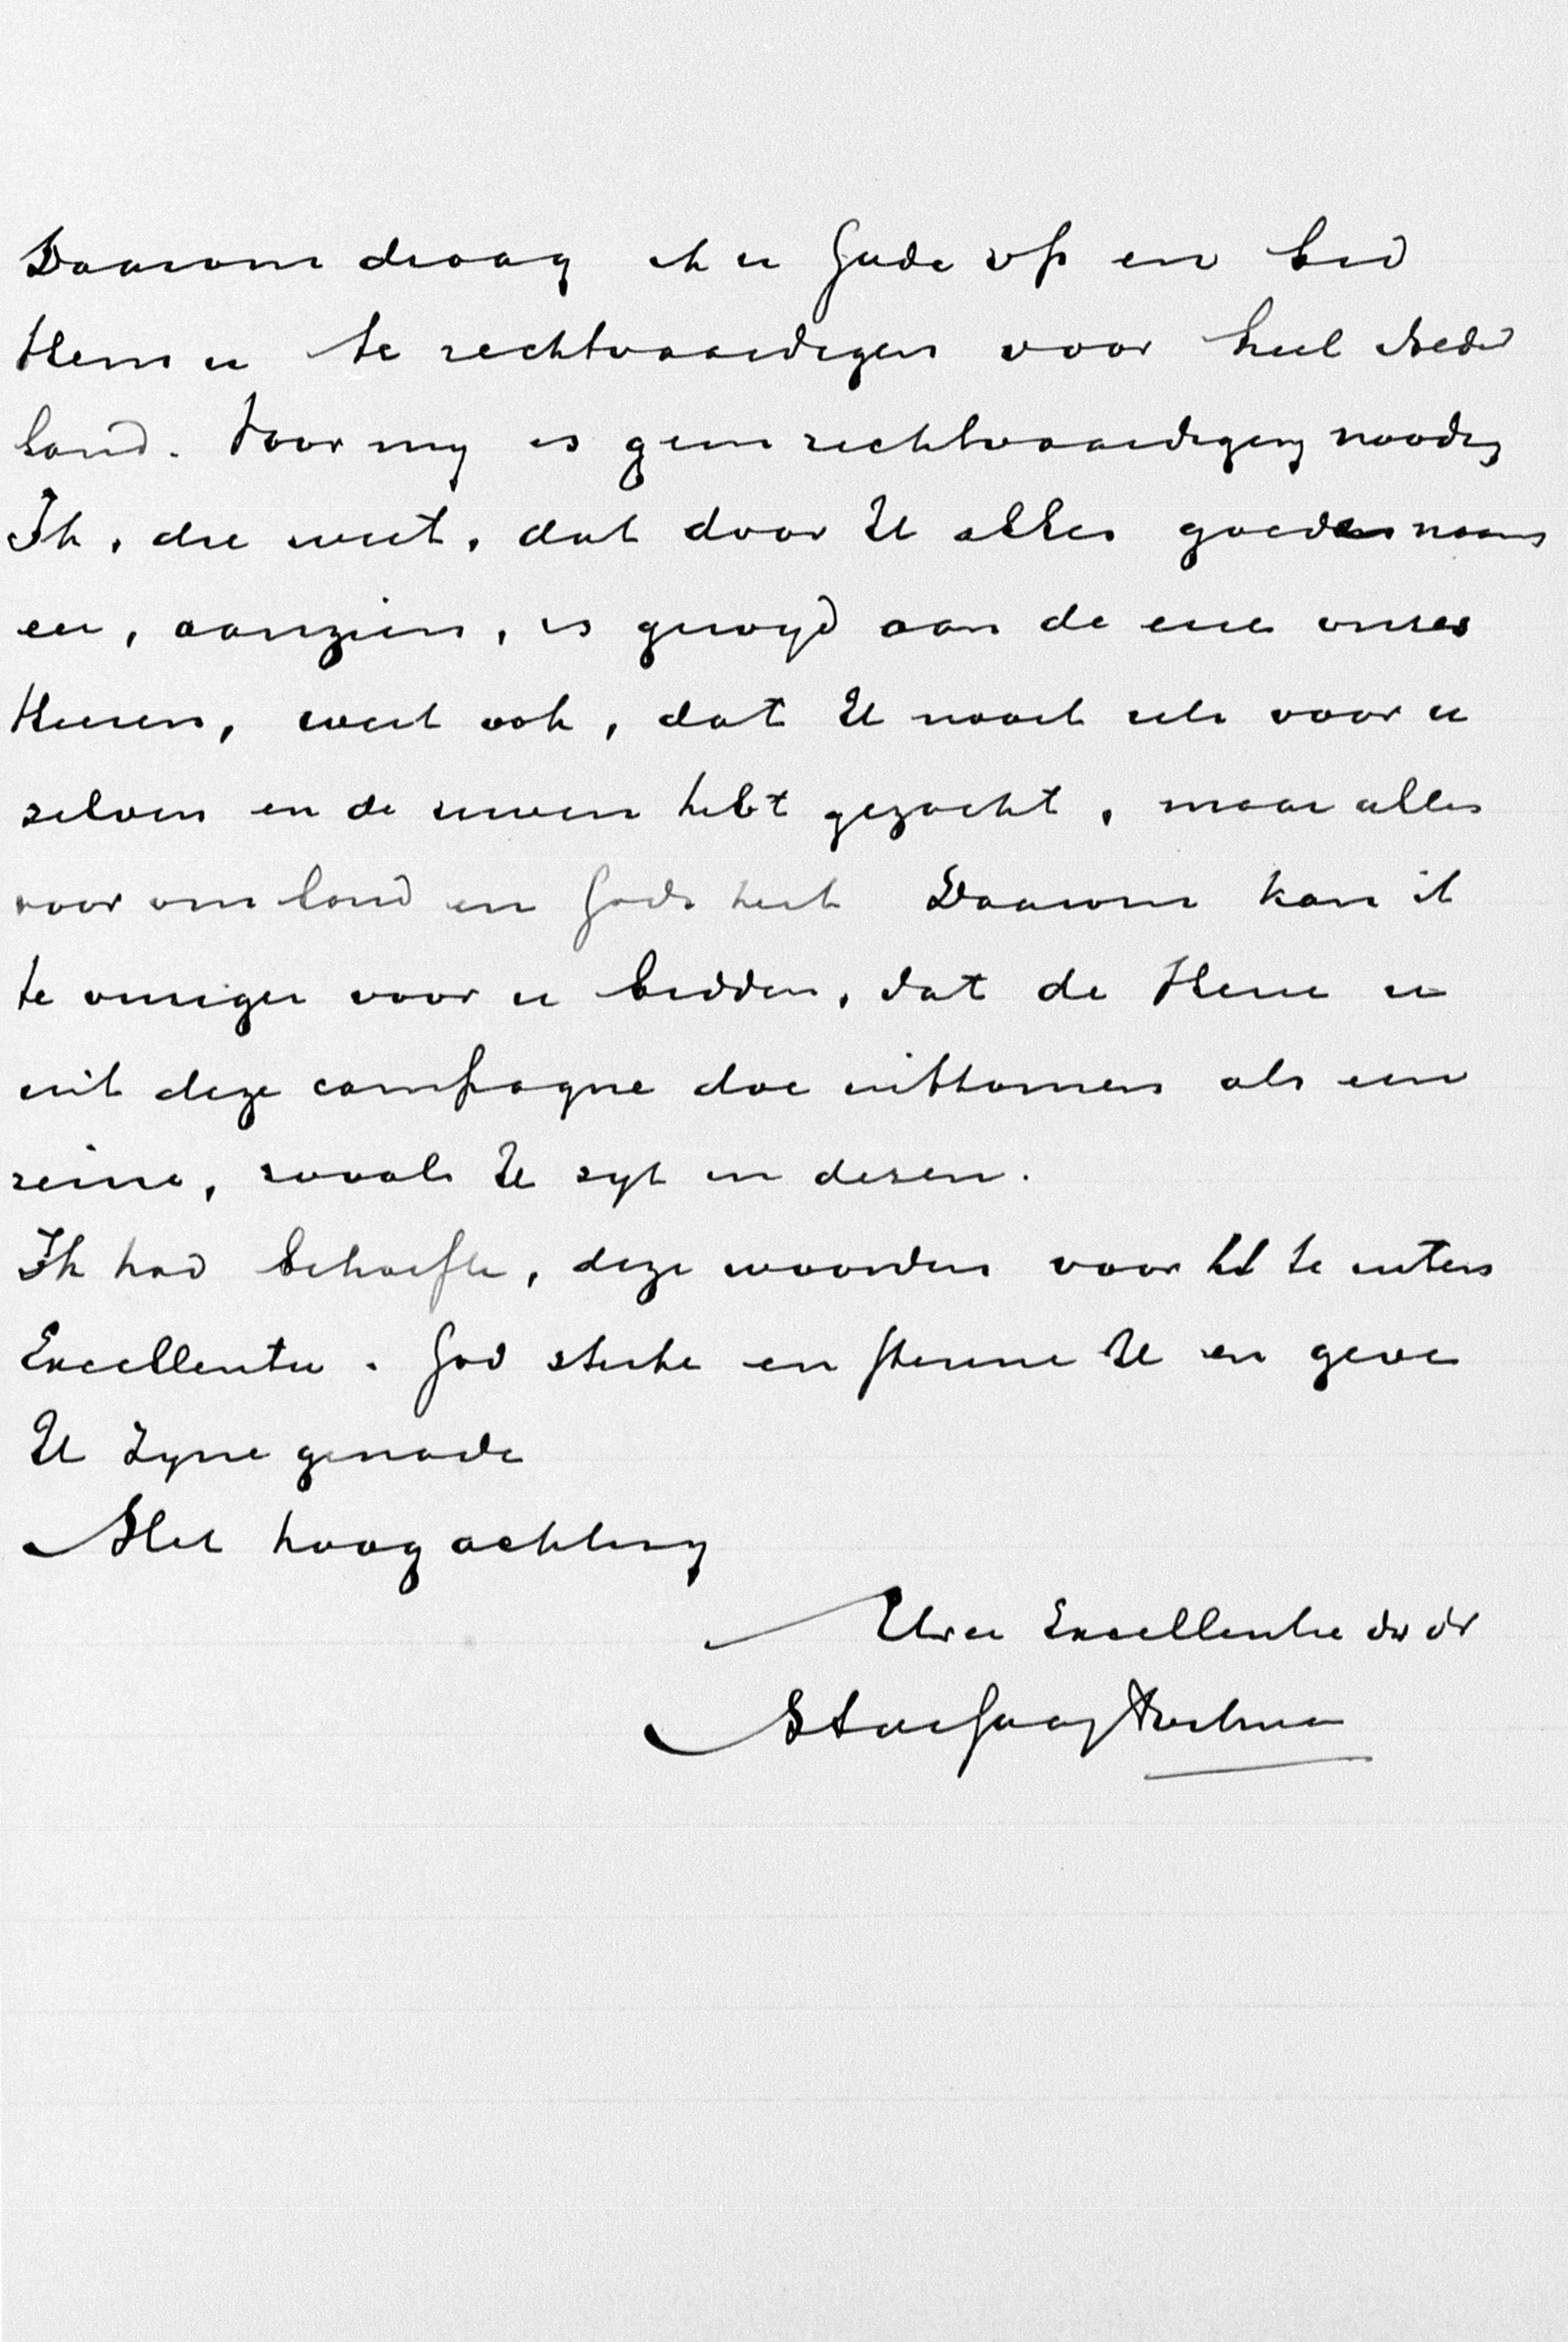 Daarom draag ik u Gode op en bid
Hem u te rechtvaardigen voor heel Neder
land. Voor my is geen rechtvaardiging noodig
Ik, die weet, dat door U alles goeden naam
eer, aanzien, is gewyd aan de eere onses
Heeren, weet ook, dat U nooit iets voor u
selven en de uwen hebt gezocht, maar alles
voor ons land en Gods kerk Daarom kan ik
te inniger voor u bidden, dat de Heere u
uit deze campagne doe uitkomen als een
reine, zooals U zyt in desen.
Ik had behoefte, deze woorden voor U te uiten
Excellentie. God sterke en steune U en geve
U Zyne genade
Met hoogachting
Uwer Excellentie dw dr